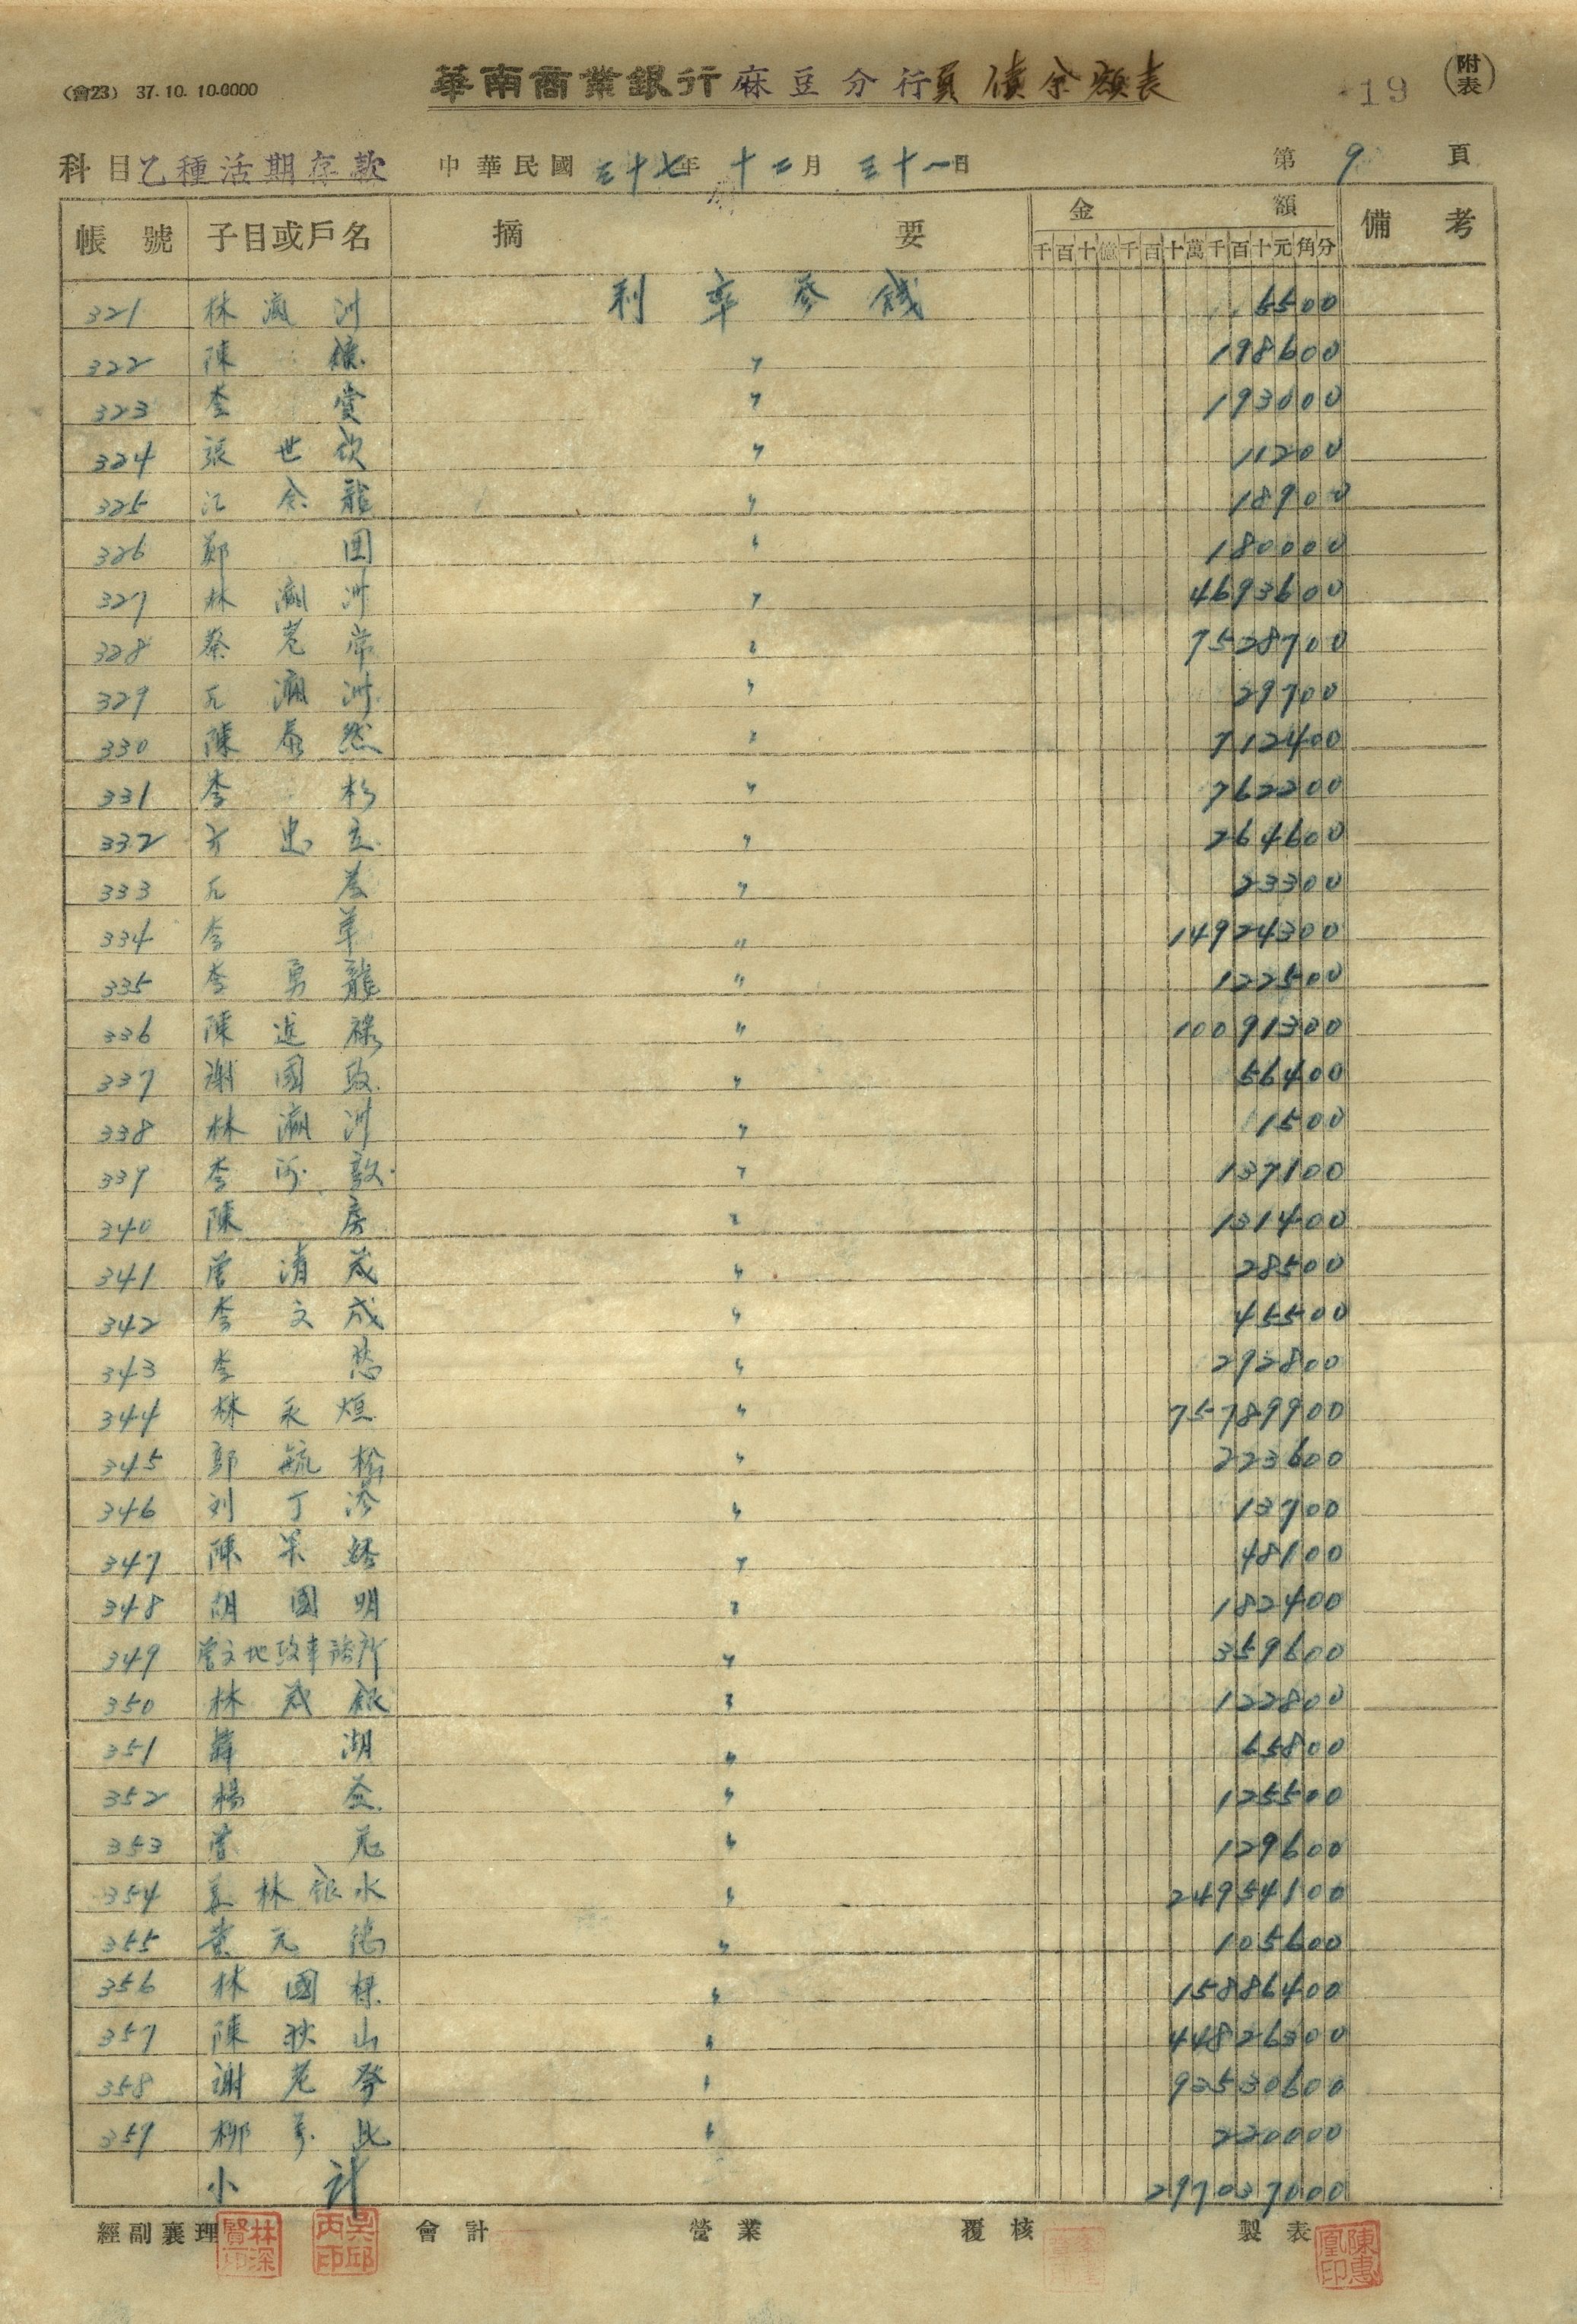 (會23) 37.10. 10.0000
華南商業銀行麻豆分行負債余額表
19
(附表)
科目乙種活期存款 中華民國三十七年十二月三十一日 第9頁
帳號 子目或戶名 摘要 金額 備考
千百十億千百十萬千百十元角分
321 林瀛洲 利率參錢 6500
322 陳 〃 198600
323 李賞 〃 193000
324 張世欽 〃 11200
325 江金龍 〃 18900
326 鄭 〃 180000
327 林瀛洲 〃 4693600
328 蔡老常 〃 7528700
329 瀛洲 〃 29700
330 陳泰然 〃 712400
331 李杉 〃 762200
332 忠立 〃 264600
333 〃 23300
334 李草 〃 14924300
335 李勇龍 〃 122500
336 陳進祿 〃 10091300
337 謝國政 〃 56400
338 林瀛洲 〃 1500
339 李 〃 137100
340 陳房 〃 131400
341 曾清茂 〃 28500
342 李文成 〃 45500
343 李 〃 292800
344 林永烜 〃 75789900
345 郭毓松 〃 223600
346 刘丁 〃 13700
347 陳 〃 48100
348 胡國明 〃 182400
349 曾文地政事務所 〃 359600
350 林茂銀 〃 122800
351 湖 〃 65800
352 楊益 〃 125500
353 曾 〃 129600
354 林銀水 〃 24954100
355 黃元 〃 105600
356 林國樑 〃 15886400
357 陳狄山 〃 44826300
358 謝老發 〃 93530600
359 柳 〃 220000
小計 297037000
經副襄理 會計 營業 覆核 製表
林深賢印
吳邱丙印
陳惠凰印